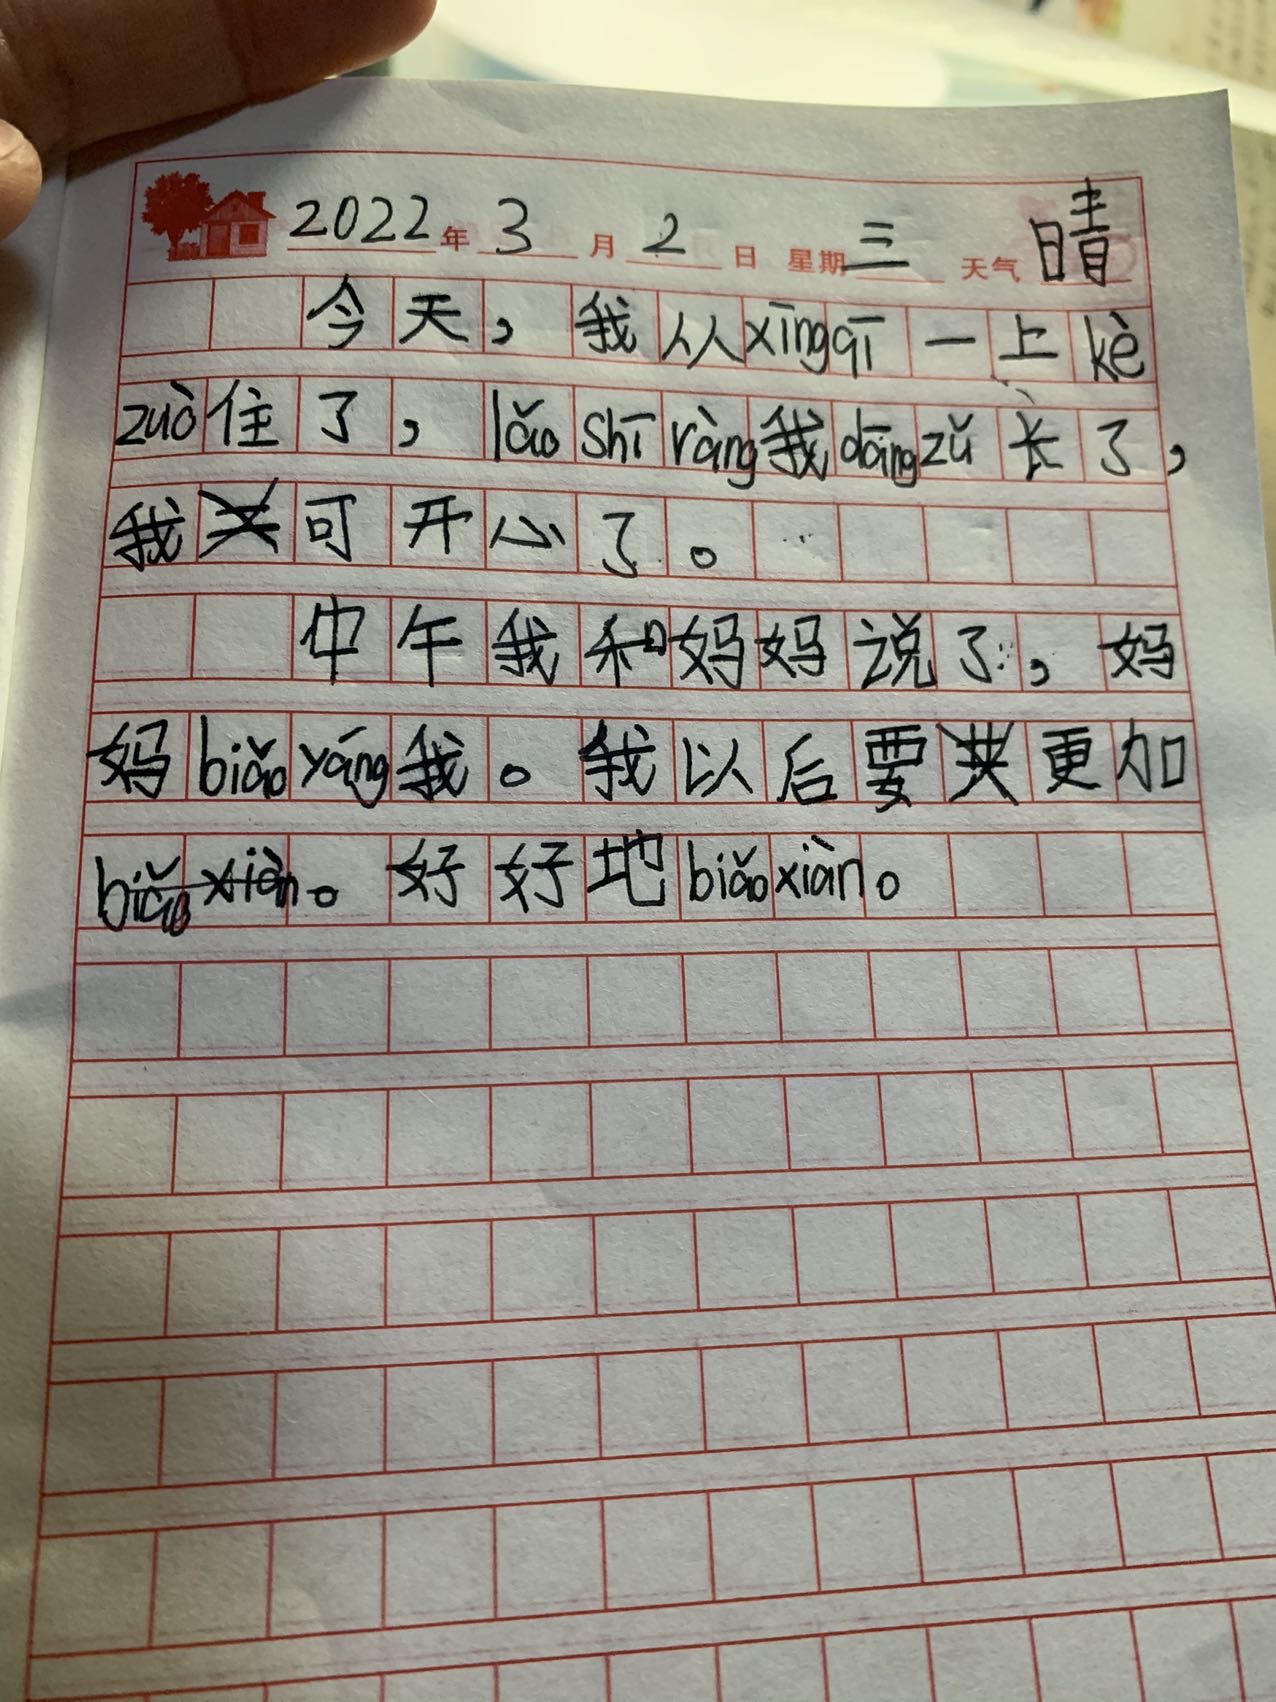 2022年3月2日 星期三 天气 晴
今天，我从xīngqī一上kè
zuò住了，lǎo shī ràng我dāngzǔ长了，
我可开心了。
中午我和妈妈说了，妈
妈biǎoyáng我。我以后要更加
biǎo xiàn。好好地biǎoxiàn。